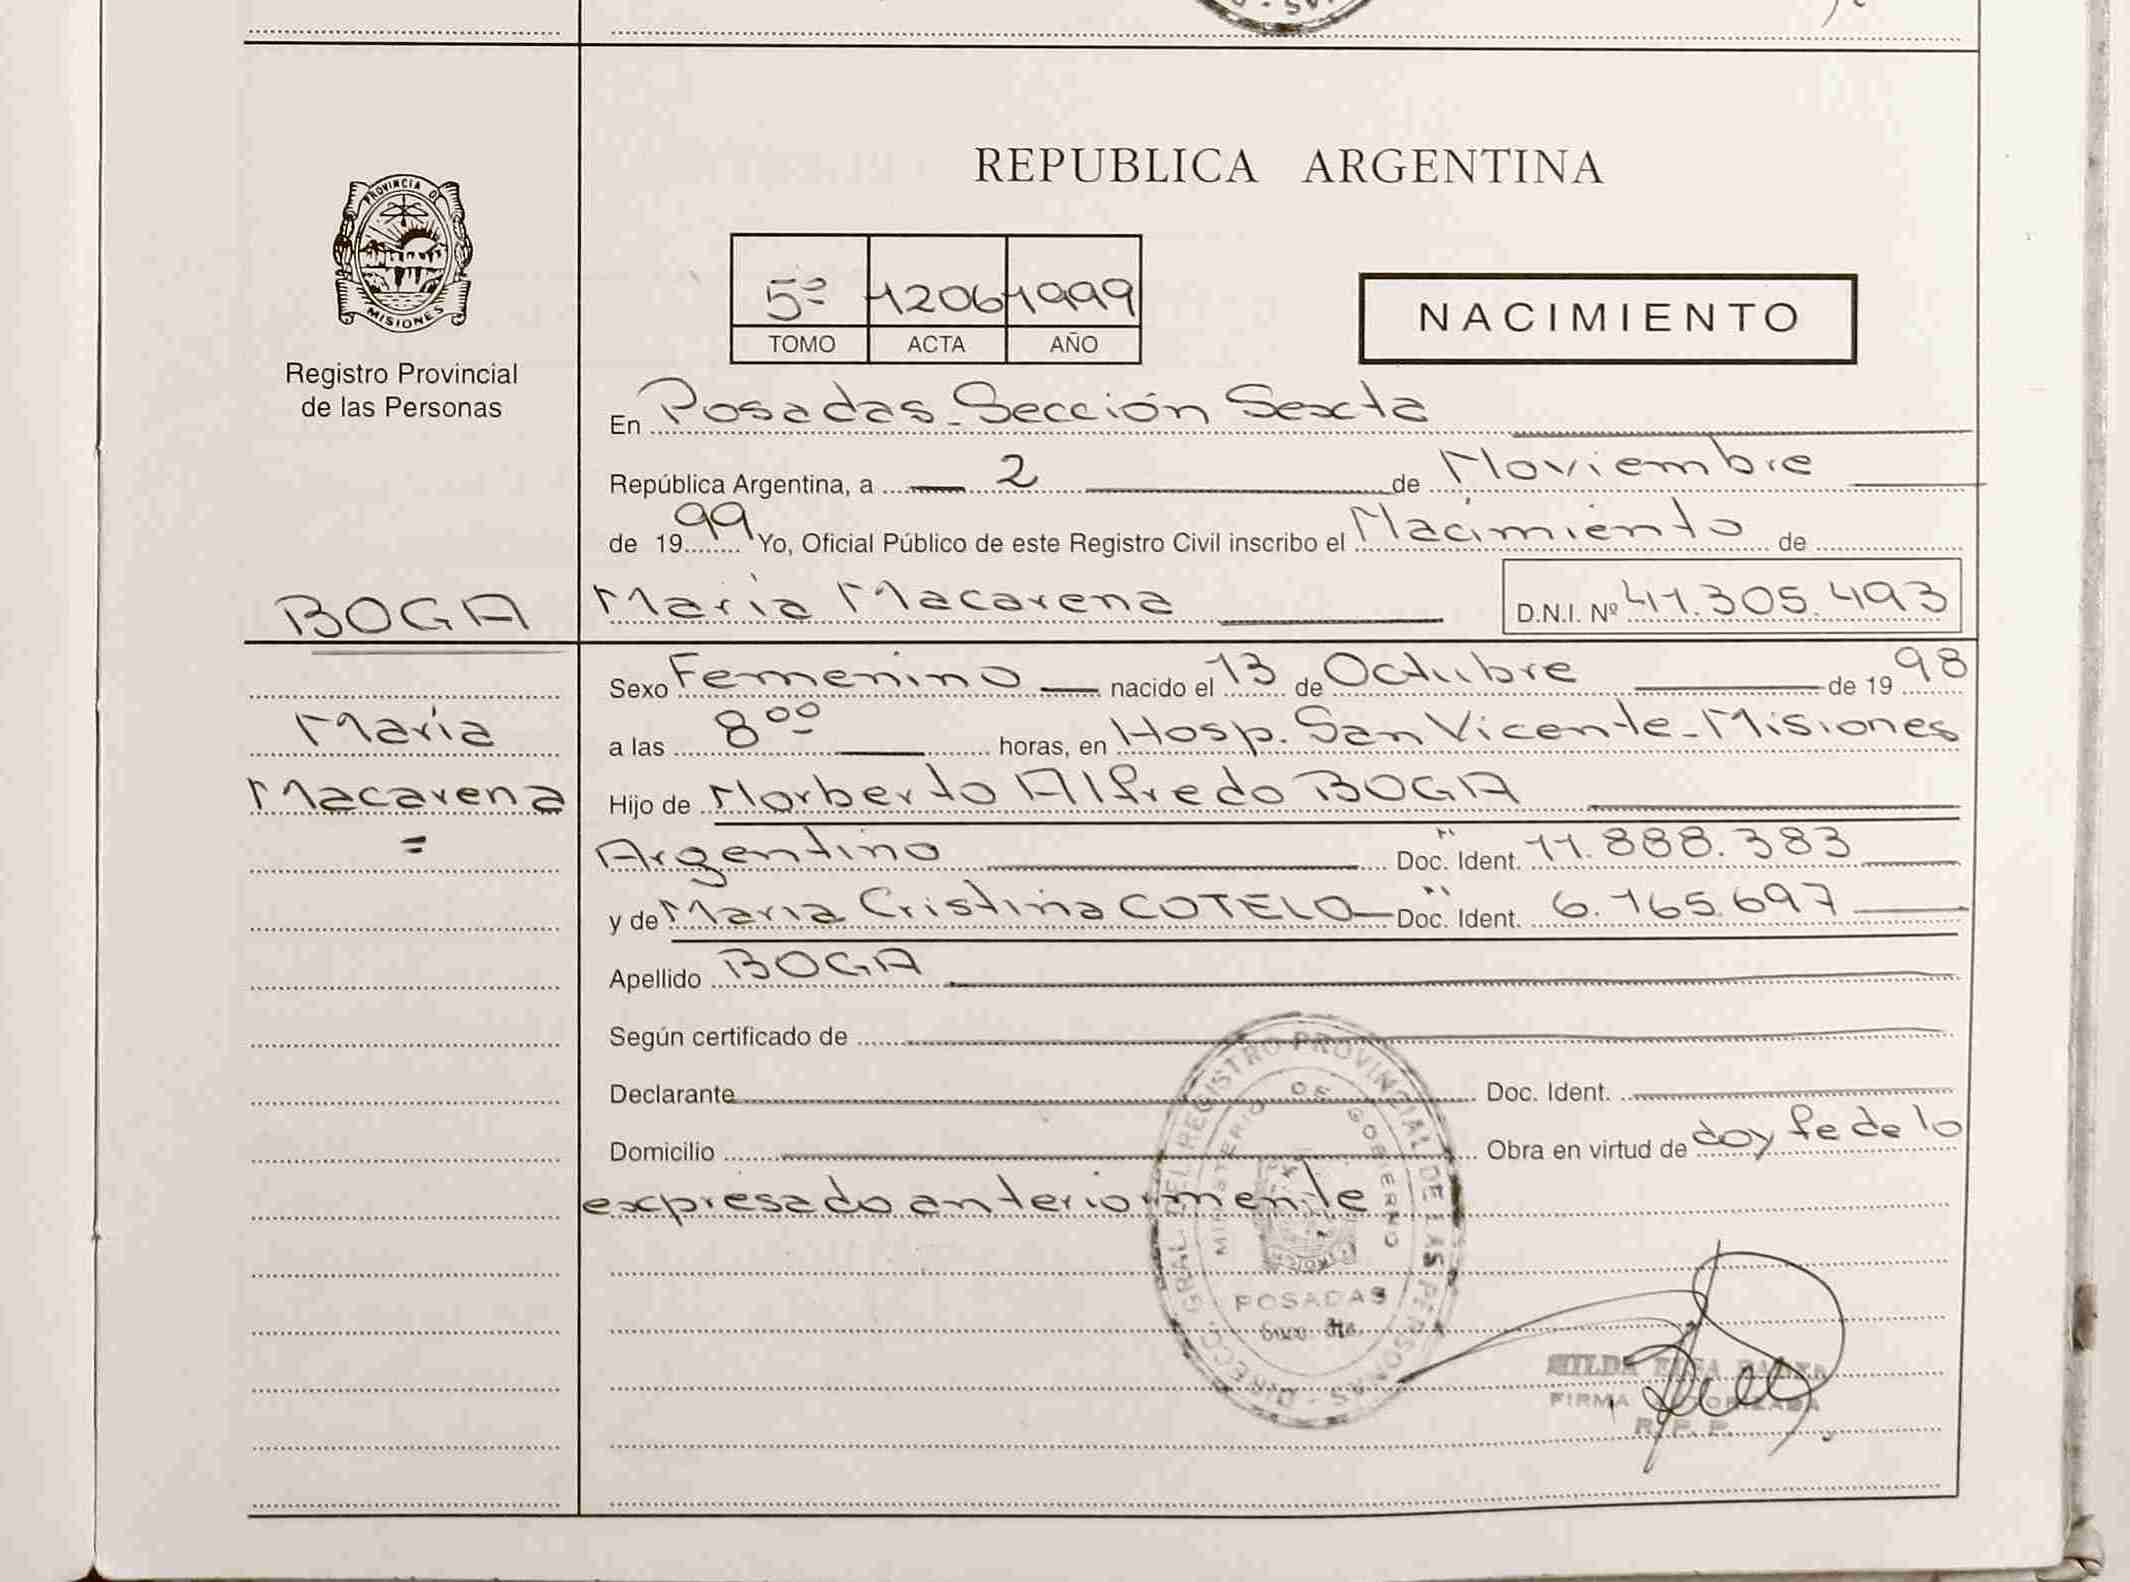 REPUBLICA ARGENTINA
PROVINCIA DE
MISIONES
Registro Provincial
de las Personas
5º 1206 1999
TOMO ACTA AÑO
NACIMIENTO
En Posadas - Sección Sexta
República Argentina, a 2 de Noviembre
de 1999 Yo, Oficial Público de este Registro Civil inscribo el Nacimiento de
BOGA María Macarena D.N.I. Nº 41.305.493
Sexo Femenino nacido el 13 de Octubre de 1998
María
a las 8⁰⁰ horas, en Hosp. San Vicente - Misiones
Macarena
Hijo de Norberto Alfredo BOGA
Argentino Doc. Ident. 11.888.383
y de María Cristina COTELO Doc. Ident. 6.165.697
Apellido BOGA
Según certificado de
Declarante Doc. Ident.
Domicilio Obra en virtud de doy fe de lo
expresado anteriormente
DIRECC. GRAL. DEL REGISTRO PROVINCIAL DE LAS PERSONAS
MINISTERIO DE GOBIERNO
POSADAS
HILDA ELSA
FIRMA AUTORIZADA
R. P. P.